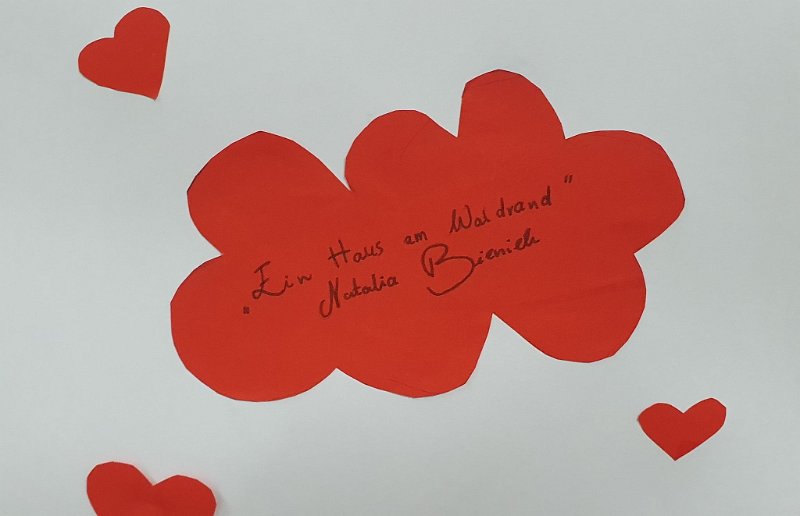 „Ein Haus am Waldrand”
Natalia Bieniek